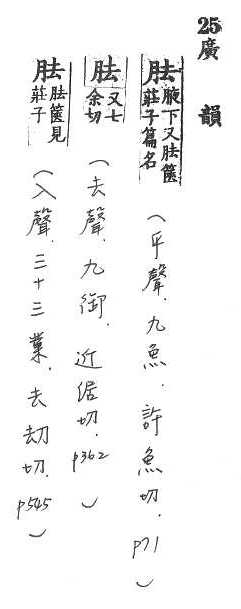 25廣韻
胠 腋下又胠篋莊子篇名 （平聲．九魚．許魚切．p71）
胠 又七余切 （去聲．九御．近倨切．p362）
胠 胠篋見莊子 （入聲．三十三業．去劫切．p545）